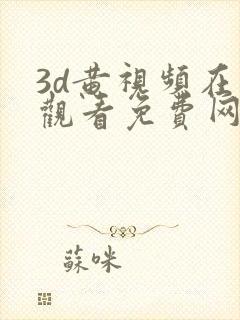 3d黄視頻在
觀看免費网
蘇咪